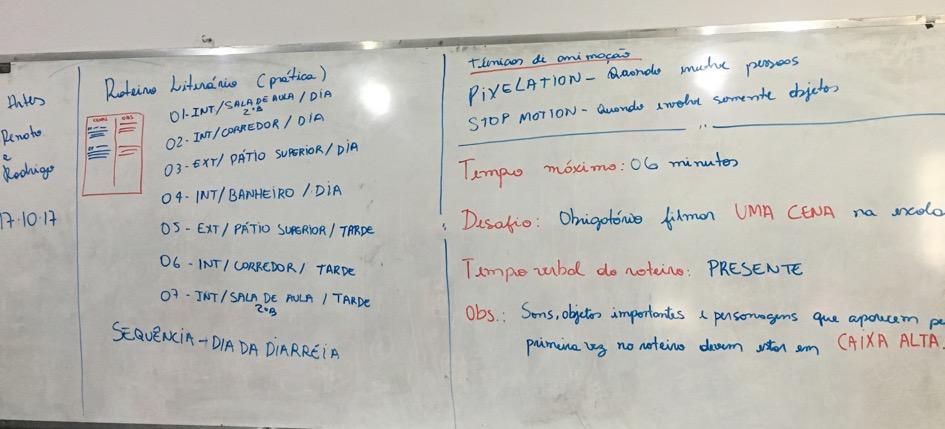 Artes
Renato
e
Rodrigo
17.10.17
Roteiro Literário (prática)
CENAS OBS
01-INT/SALA DE AULA / DIA
2ºB
02-INT/CORREDOR / DIA
03-EXT/ PÁTIO SUPERIOR/DIA
04-INT/BANHEIRO / DIA
05-EXT/ PÁTIO SUPERIOR/TARDE
06-INT/CORREDOR/ TARDE
07-INT/SALA DE AULA / TARDE
2ºB
SEQUÊNCIA → DIA DA DIARRÉIA
técnicas de animação
PIXELATION - Quando envolve pessoas
STOP MOTION - Quando envolve somente objetos
Tempo máximo: 06 minutos
Desafio: Obrigatório filmar UMA CENA na escola
Tempo verbal do roteiro: PRESENTE
Obs.: Sons, objetos importantes e personagens que aparecem pe
primeira vez no roteiro devem estar em CAIXA ALTA.